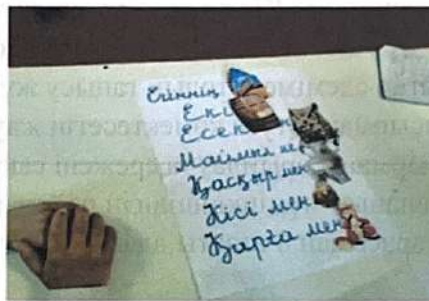 Егіннің
Екі
Есек
Маймыл м
Қасқыр мен
Кісі мен
Қарға мен